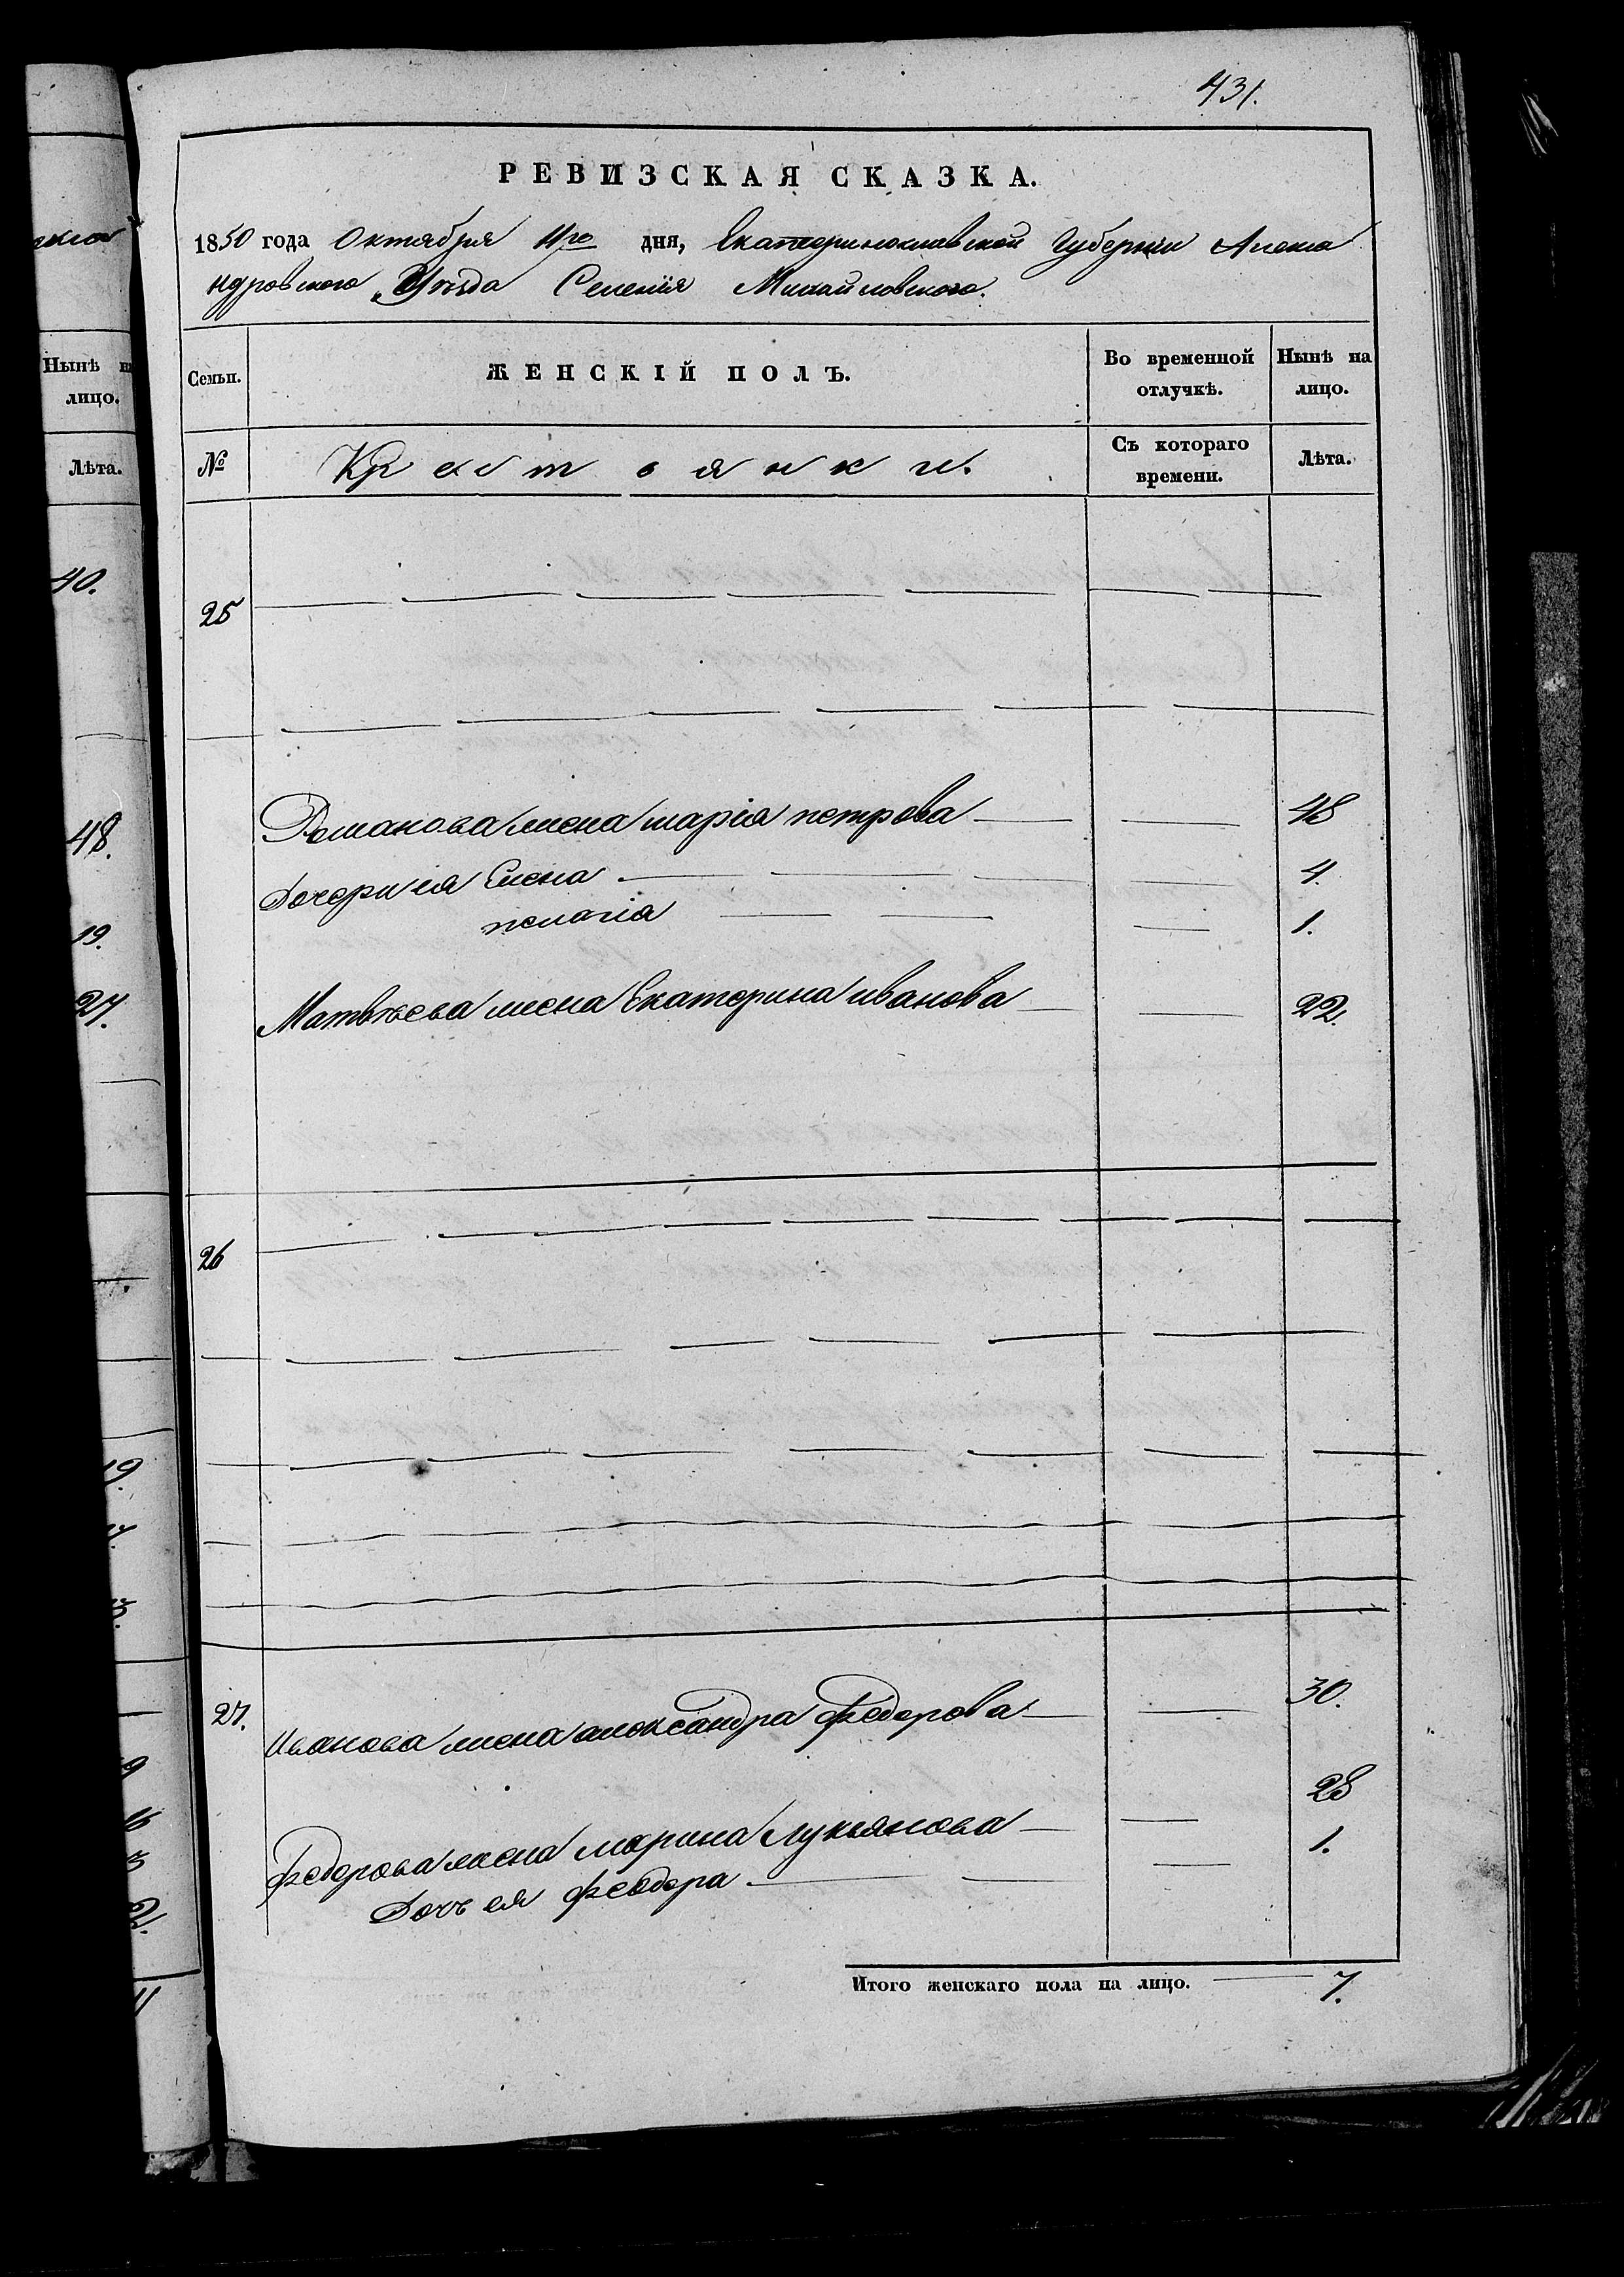 431.
РЕВИЗСКАЯ СКАЗКА.
1850 года Октября 11го дня, Екатеринославской Губернии Алекса
ндровского Уѣзда Селенія Михайловского.
Нынѣ на лицо.
Семьи. ЖЕНСКІЙ ПОЛЪ. Во временной отлучкѣ. Нынѣ на лицо.
Лѣта.
№ Крестьянки. Съ котораго времени. Лѣта.
40.
25
48.
Романова жена марія петрова 48
Дочери ія Елена 4.
пелагіа 1.
19.
27.
Матвѣева жена Екатерина иванова 22.
26
19.
27. Иванова жена александра Федорова 30.
Федорова жена Марина Лукьянова 28
Дочь ея феодора 1.
11
Итого женскаго пола на лицо. 7.